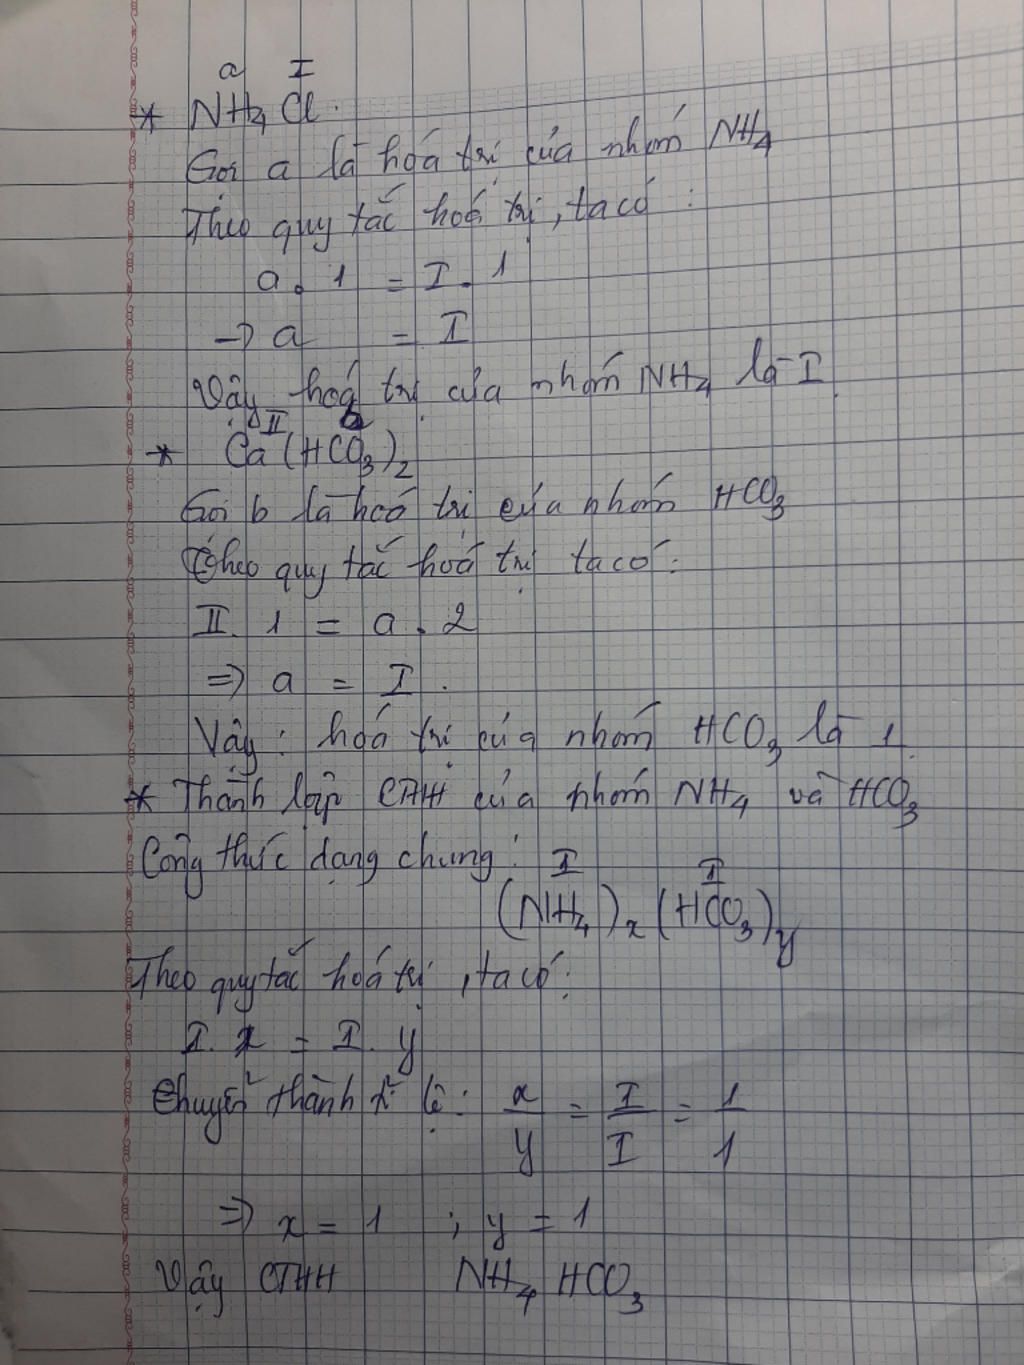 a I
* NH4 Cl.
Gọi a là hoá trị của nhóm NH4
Theo quy tắc hoá trị, ta có :
a . 1 = I . 1
→ a = I
Vậy hoá trị của nhóm NH4 là I.
II a
* Ca (HCO3)2
Gọi b là hoá trị của nhóm HCO3
Theo quy tắc hoá trị ta có :
II. 1 = a . 2
=> a = I .
Vậy : hoá trị của nhóm HCO3 là 1.
* Thành lập CTHH của nhóm NH4 và HCO3
Công thức dạng chung :
I I
(NH4)x (HCO3)y
Theo quy tắc hoá trị, ta có :
I. x = I. y
Chuyển thành tỉ lệ : x/y = I/I = 1/1
=> x = 1 ; y = 1
Vậy CTHH NH4 HCO3